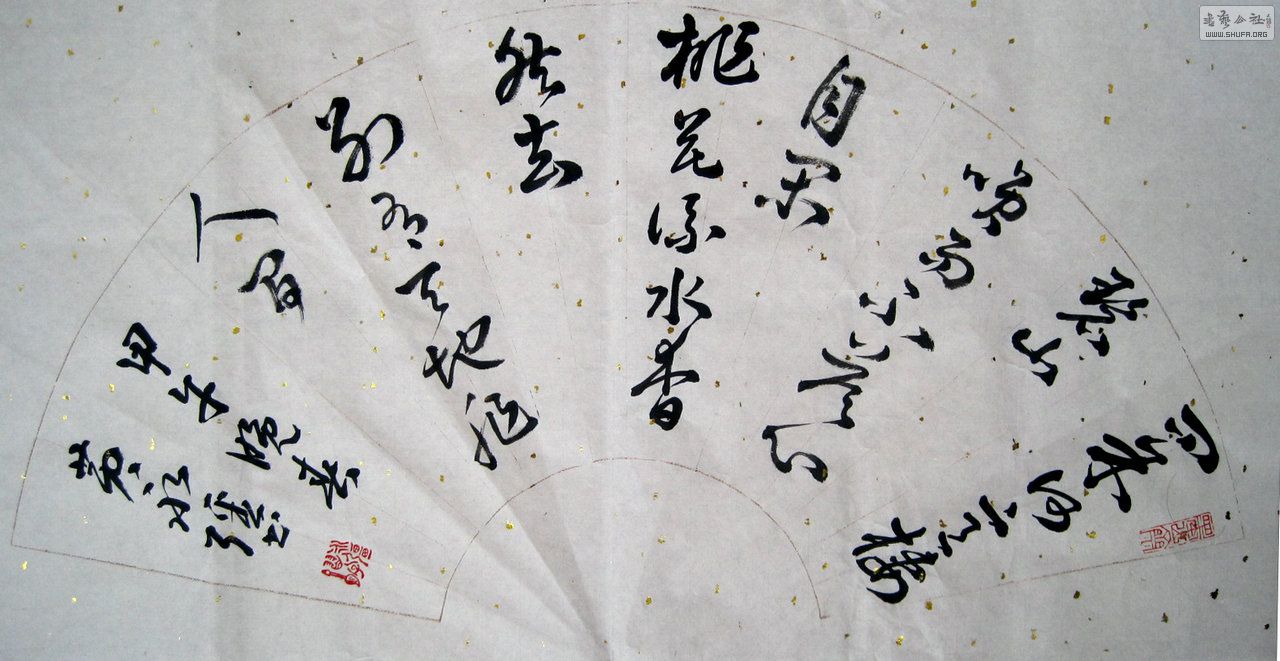 问余何意棲
碧山
笑而不答心
自閑
桃花流水杳
然去
别有天地非
人间
甲午晚春
书艺公社
WWW.SHUFA.ORG